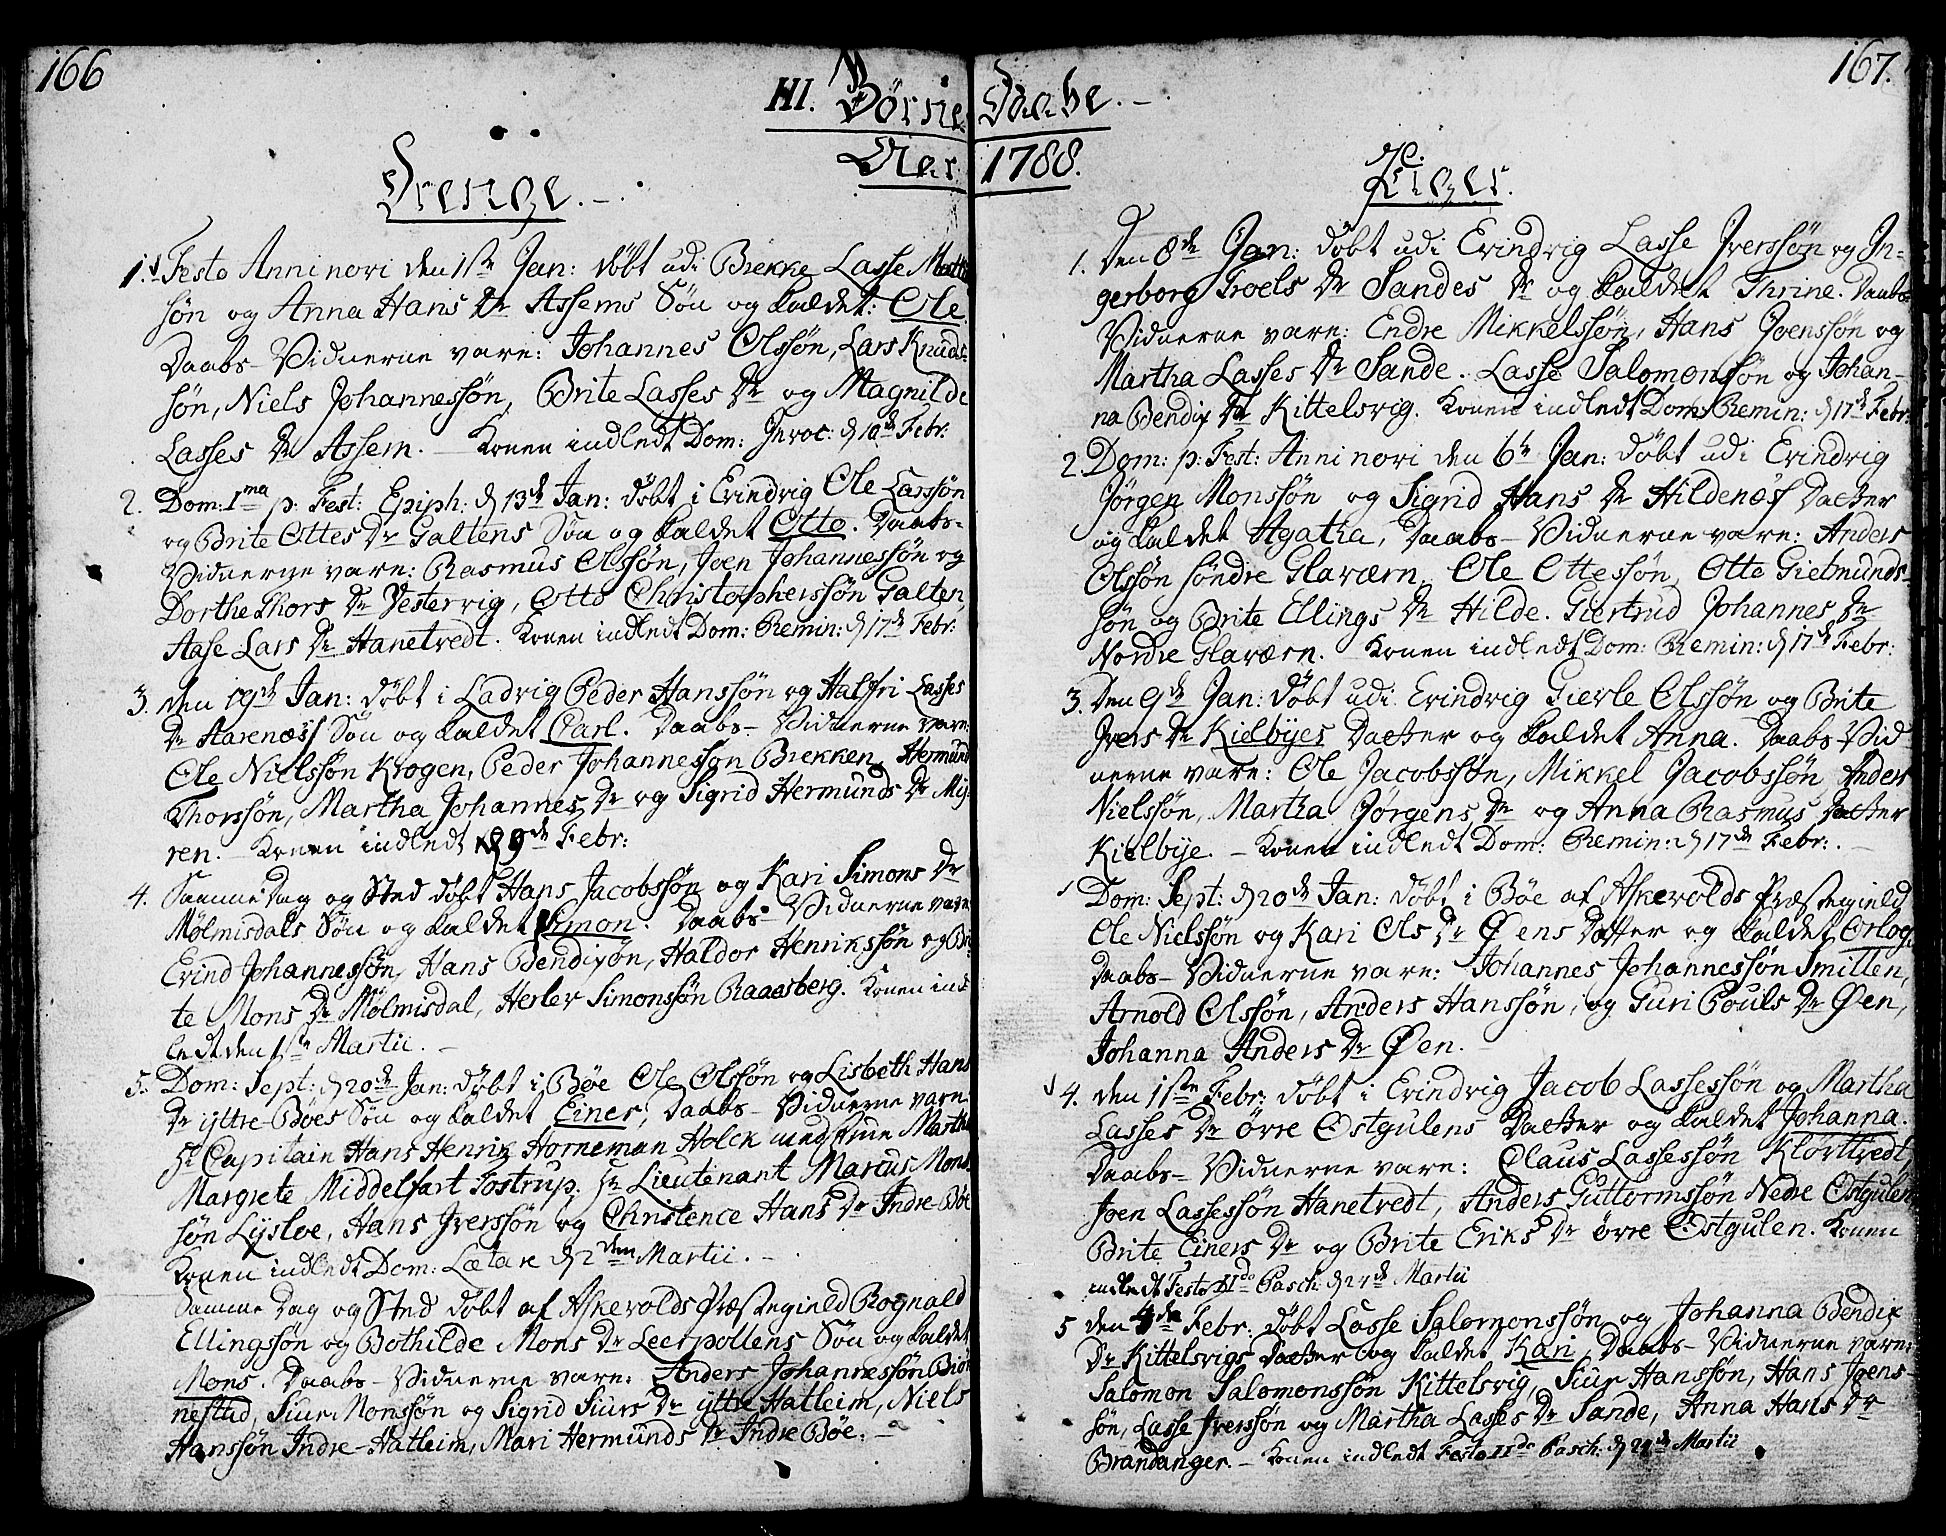 166
III. Børne
Aar
Drenge.
1. Festo Anni novi den 1ste Jan: døbt udi Brekke Lasse
søn og Anna Hans Dr Assems Søn og kaldet: Ole
Daabs-Vidnerne vare: Johannes Olssøn, Lars Knuds-
søn, Niels Johannessøn, Brite Lasses Dr og Magnilde
Lasses Dr Assem. Konen indledt Dom: Invoc: d 10de Febr:
2. Dom: 1ma p: Fest: Epiph: d 13de Jan: døbt i Evindvig Ole Larssøn
og Brite Ottes Dr Galtens Søn og kaldet Otto. Daabs-
Vidnerne vare: Rasmus Olssøn, Joen Johannessøn og
Dorthe Thors Dr Vestervig, Otto Christopherssøn Galten,
Aase Lars Dr Hanetvedt. Konen indledt Dom: Remin: d 17de Febr:
3. den 19de Jan: døbt i Ladvig Peder Hanssøn og Halfri Lasses
Dr Aarenæss Søn og kaldet Carl. Daabs-Vidnerne vare:
Ole Nielssøn Krogen, Peder Johannessøn Brekken, Hermund
Thorssøn, Martha Johannes Dr og Sigrid Hermunds Dr My-
ren. - Konen indledt d 9de Febr:
4. Samme Dag og Sted døbt Hans Jacobssøn og Kari Simons Dr
Mølmisdals Søn og kaldet Simon. Daabs-Vidnerne vare
Evind Johannessøn, Hans Bendixøn, Haldor Henrikssøn og Bri-
te Mons Dr Mølmisdal, Herlev Simonssøn Raaesberg. Konen ind-
ledt den 1ste Martii. -
5. Dom: Sept: d 20de Jan: døbt i Bøe Ole Olssøn og Lisbeth Hans
Dr yttre Bøes Søn og kaldet Einer, Daabs-Vidnerne vare
Hr Capitain Hans Henrik Horneman Holck med Frue Martha
Margrete Middelfart Tostrup. Hr Lieutenant Marcus Mons-
søn Lysloe, Hans Iverssøn og Christence Hans Dr Indre-Bøe
Konen indledt Dom: Lætare d 2den Martii. -
Samme Dag og Sted døbt af Askevolds Præstegield Rognald
Ellingssøn og Bothilde Mons Dr Leerpollens Søn og kaldet
Mons. Daabs-Vidnerne vare: Anders Johannessøn Biør-
nestad, Siur Monssøn og Sigrid Siurs Dr yttre Hatleim, Niels
Hanssøn Indre-Hatleim, Mari Hermunds Dr Indre Bøe. -
167.
Daabe.
1788.
Piger.
1. Den 8de Jan: døbt udi Evindvig Lasse Iverssøn og In-
gerborg Troels Dr Sandes Dr og kaldet Thrine. Daabs-
Vidnerne vare: Endre Mikkelssøn, Hans Joenssøn og
Martha Lasses Dr Sande. Lasse Salomonssøn og Johan-
na Bendix Dr Kittelsvig. Konen indledt Dom: Remin: d 17de Febr:
2. Dom: p: Fest: Anni novi den 6te Jan: døbt udi Evindvig
Jørgen Monssøn og Sigrid Hans Dr Hildenæss Datter
og kaldet Agatha, Daabs-Vidnerne vare: Anders
Olssøn søndre Glaværn, Ole Ottessøn, Otto Gietmunds-
søn og Brite Ellings Dr Hilde. Giertrud Johannes Dr
Nordre Glaværn. Konen indledt Dom: Remin: d 17de Febr:
3. Den 9de Jan: døbt udi Evindvig Gierle Olssøn og Brite
Ivers Dr Kielbyes Datter og kaldet Anna. Daabs-Vid-
nerne vare: Ole Jacobssøn, Mikkel Jacobssøn, Anders
Nielssøn, Martha Jørgens Dr og Anna Rasmus Datter
Kielbye. - Konen indledt Dom: Remin: d 17de Febr: -
Dom: Sept: d 20de Jan: døbt i Bøe af Askevolds Præstegield
Ole Nielssøn og Kari Ols Dr Øens Datter og kaldet Orlog,
Daabs-Vidnerne vare: Johannes Johannessøn Smitten,
Arnold Olssøn, Anders Hanssøn, og Guri Pouls Dr Øen,
Johanna Anders Dr Øen. -
4. den 1ste Febr: døbt i Evindvig Jacob Lassessøn og Martha
Lasses Dr øvre Østgulens Datter og kaldet Johanna.
Daabs-Vidnerne vare: Claus Lassessøn Kløvtvedt,
Joen Lassessøn Hanetvedt, Anders Guttormssøn Nedre Østgulen
Brite Einers Dr og Brite Eriks Dr øvre Østgulen. Konen
indledt Festo IIdo Pasch: d 24de Martii
5 den 4de Febr: døbt Lasse Salomonssøn og Johanna Bendix
Dr Kittelsvigs Datter og kaldet Kari, Daabs-Vidnerne vare:
Salomon Salomonssøn Kittelsvig, Siur Hanssøn, Hans Joens-
søn, Lasse Iverssøn og Martha Lasses Dr Sande, Anna Hans Dr
Brandanger. - Konen indledt Festo IIdo Pasch: d 24de Martii